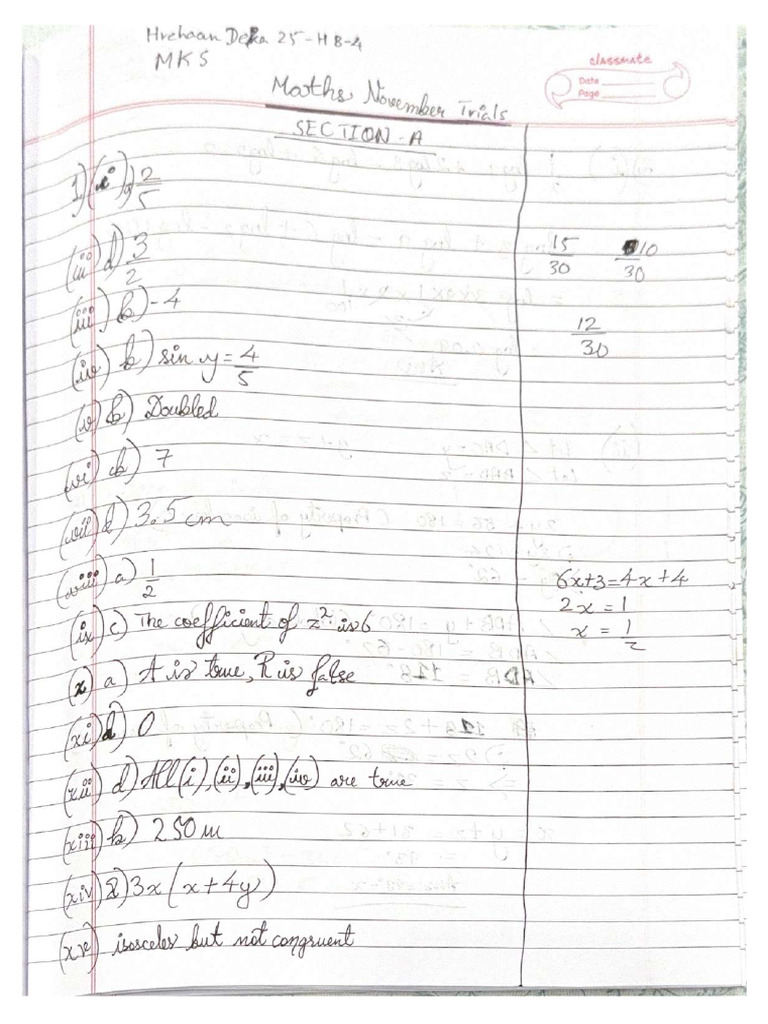 Hrehaan Deka 25-HB-4
MKS
classmate
Date
Page
Maths November Trials
SECTION-A
1) (i) 2/5
(ii) d) 3/2
15/30 10/30
(iii) b) -4
12/30
(iv) b) sin y = 4/5
(v) b) Doubled
(vi) b) 7
(vii) d) 3.5 cm
(viii) a) 1/2
6x+3=4x+4
2x = 1
x = 1/2
(ix) c) The coefficient of z² is 6
(x) a) A is true, R is false
(xi) d) 0
(xii) d) All (i), (ii), (iii), (iv) are true
(xiii) b) 250 m
(xiv) 3x(x+4y)
(xv) isosceles but not congruent